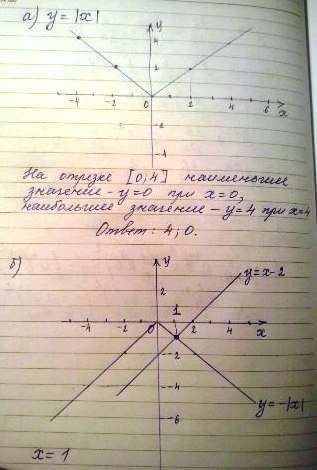 а) y = |x|
y
4
2
-4 -2 0 2 4 6
x
-2
-4
На отрезке [0; 4] наименьшее
значение - y=0 при x=0,
наибольшее значение - y=4 при x=4
Ответ: 4; 0.
б)
y
y=x-2
2
1
-4 -2 0 2 4
x
-2
-4
y=-|x|
-6
x = 1